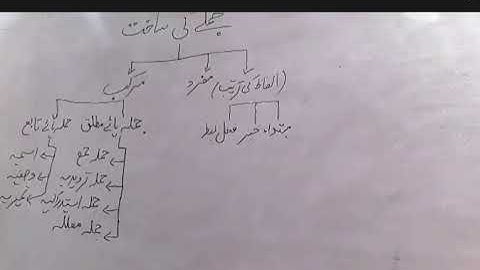 جملے کی ساخت
(الفاظ کی ترتیب) مفرد مرکب
مبتداء خبر فعل
جملہ ہائے مطلق جملہ ہائے تابع
جملہ جمع اسمیہ
جملہ تردیدیہ وصفیہ
جملہ استدراکیہ تمیزیہ
جملہ معللہ